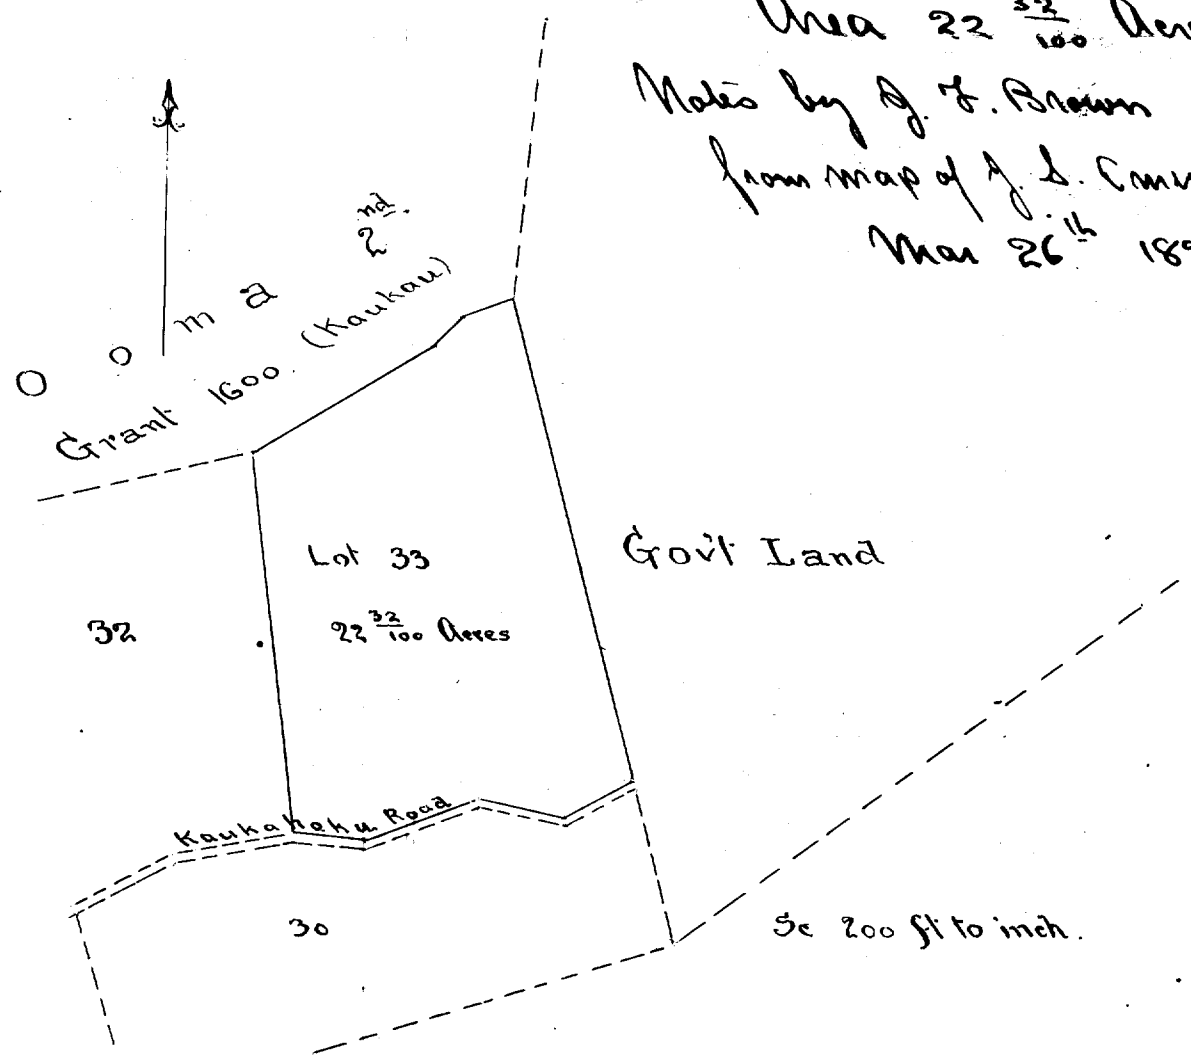 Area 22 32/100
Notes by J. F. Brown
from map of J. S.
Mar 26th
Ooma 2nd.
Grant 1600. (Kaukau)
Lot 33
22 32/100 Acres
32
Gov't Land
Kaukahoku Road
30
Sc 200 ft to inch.